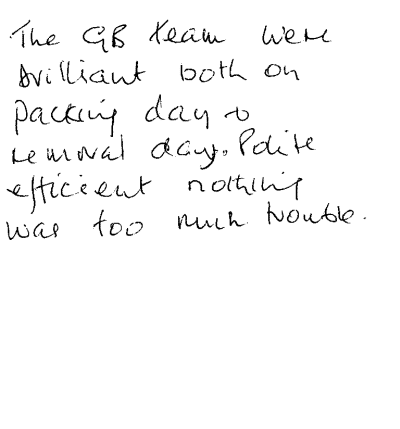 The GB team were
brilliant both on
packing day &
removal day. Polite
efficient nothing
was too much trouble.